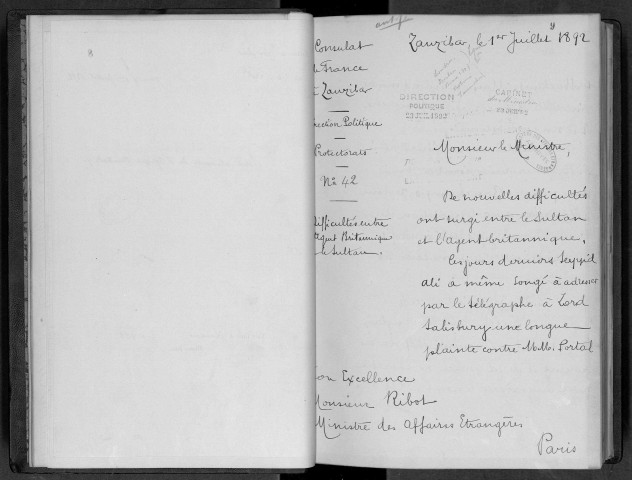 8
9
Zanzibar, le 1er Juillet 1892
Consulat
de France
à Zanzibar
DIRECTION
POLITIQUE
CABINET
Direction Politique
Protectorats
No 42
Difficultés entre
l'Agent Britannique
le Sultan.
Monsieur le Ministre,
De nouvelles difficultés
ont surgi entre le Sultan
et l'agent britannique,
les jours derniers Seyyid
Ali a même songé à adresser
par le télégraphe à Lord
Salisbury une longue
plainte contre M.M. Portal
Son Excellence
Monsieur Ribot
Ministre des Affaires Etrangères
Paris